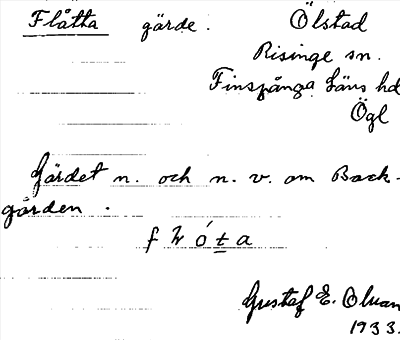 Flåtta gärde. Ölstad
Risinge sn.
Finspånga Läns hd
Ögl
Gärdet n. och n. v. om Back-
gården.
Gustaf E. Olvan
1933.